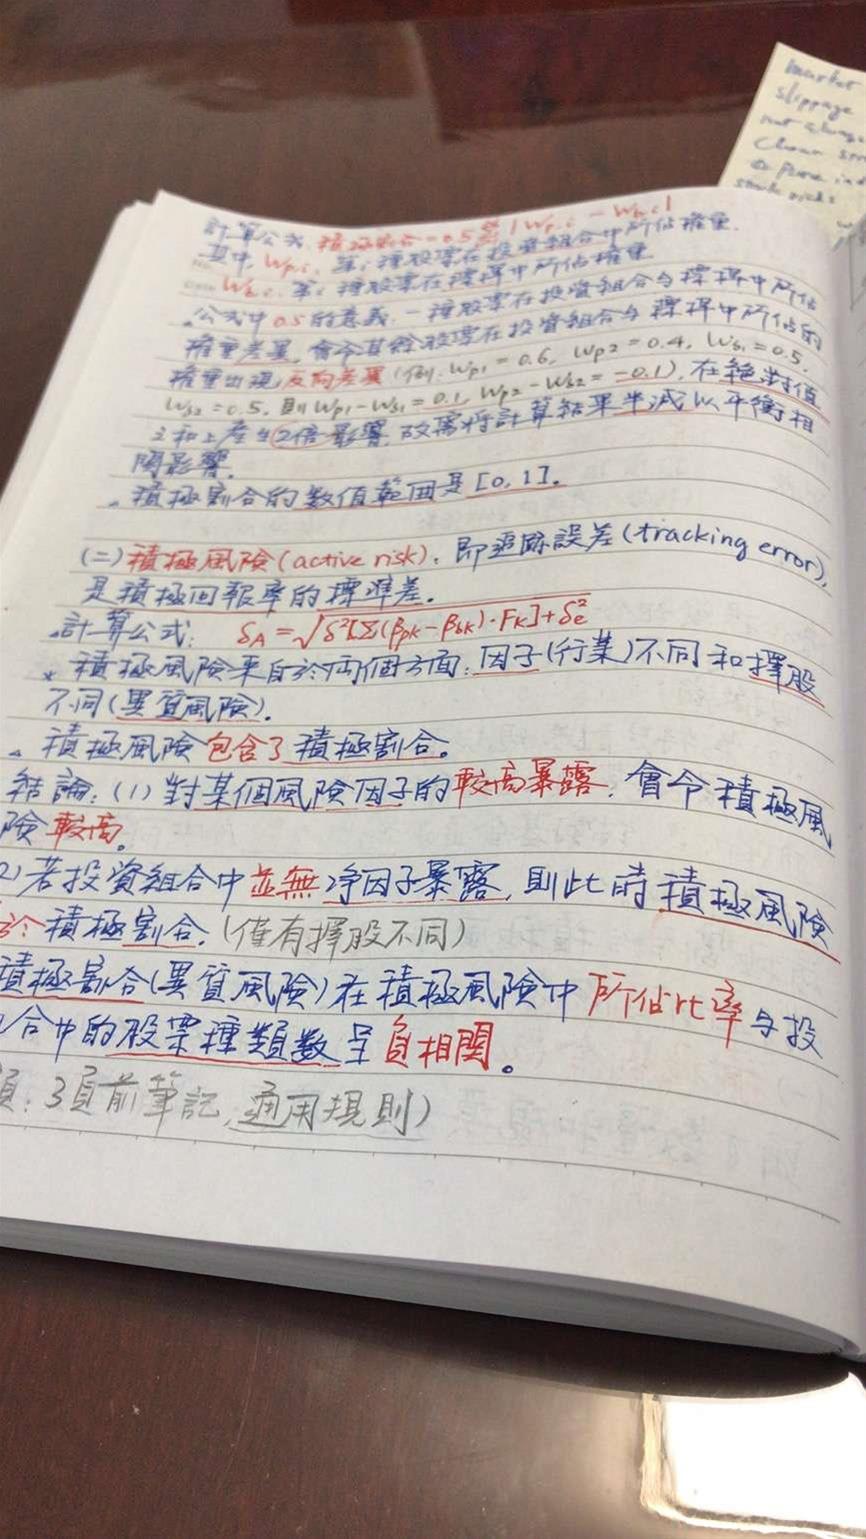 計算公式: 積極割合=0.5Σ|Wp,i - Wb,i|
其中, Wp,i: 第i種股票在投資組合中所佔權重.
Wb,i: 第i種股票在標桿中所佔權重
。公式中0.5的意義: 一種股票在投資組合与標桿中所佔
權重差異, 會令其餘股票在投資組合与標桿中所佔的
權重出現反向差異(例: Wp1=0.6, Wp2=0.4, Wb1=0.5,
Wb2=0.5, 則Wp1-Wb1=0.1, Wp2-Wb2=-0.1), 在絕對值
之和上產生2倍影響, 故需將計算結果半減以平衡相
関影響.
。積極割合的数值範囲是[0,1]。
(二)積極風險(active risk): 即追踪誤差(tracking error),
是積極回報率的標準差。
。計算公式: δA=√δ²[Σ(βpk-βbk)·Fk]+δe²
* 積極風險來自於両個方面: 因子(行業)不同和擇股
不同(異質風險)。
。積極風險包含了積極割合。
結論: (1) 對某個風險因子的較高暴露, 會令積極風
險較高。
2)若投資組合中並無凈因子暴露, 則此時積極風險
於積極割合. (僅有擇股不同)
積極割合(異質風險)在積極風險中所佔比率与投
合中的股票種類数呈負相関。
3頁前筆記, 通用規則)
market
slippage
not always